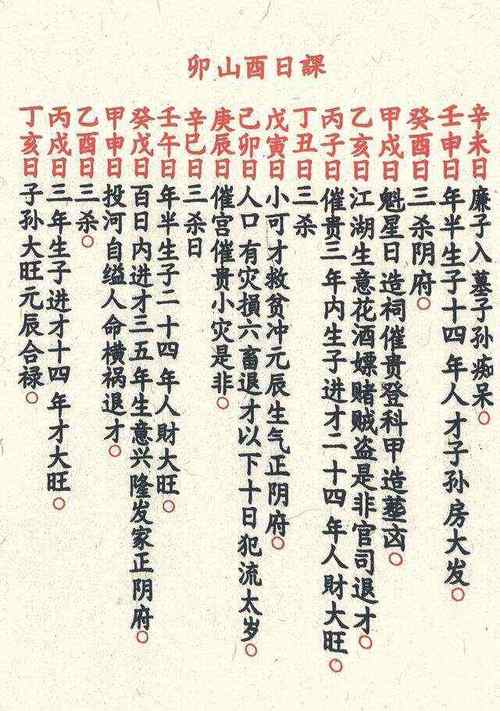 卯山酉日課
辛未日廉子入墓子孙痴呆○
壬申日年半生子十四年人才子孙房大发○
癸酉日三杀阴府○
甲戍日魁星日造祠催贵登科甲造塟凶○
乙亥日江湖生意花酒嫖赌贼盗是非官司退才○
丙子日催贵三年内生子进才二十四年人財大旺○
丁丑日三杀
戊寅日小可才救贫冲元辰生气正阴府○
己卯日人口有灾損六畜退才以下十日犯流太岁○
庚辰日催宫催贵小灾是非○
辛巳日三杀日
壬午日年半生子二十四年人財大旺○
癸戊日百日内进才三五年生意兴隆发家正阴府○
甲申日投河自缢人命横祸退才○
乙酉日三杀○
丙戍日三年生子进才十四年才大旺○
丁亥日子孙大旺元辰合禄○